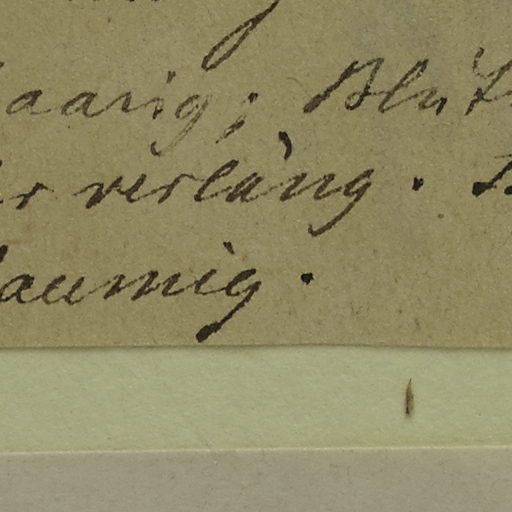 aarig; Blüt
r verläng.
aumig.